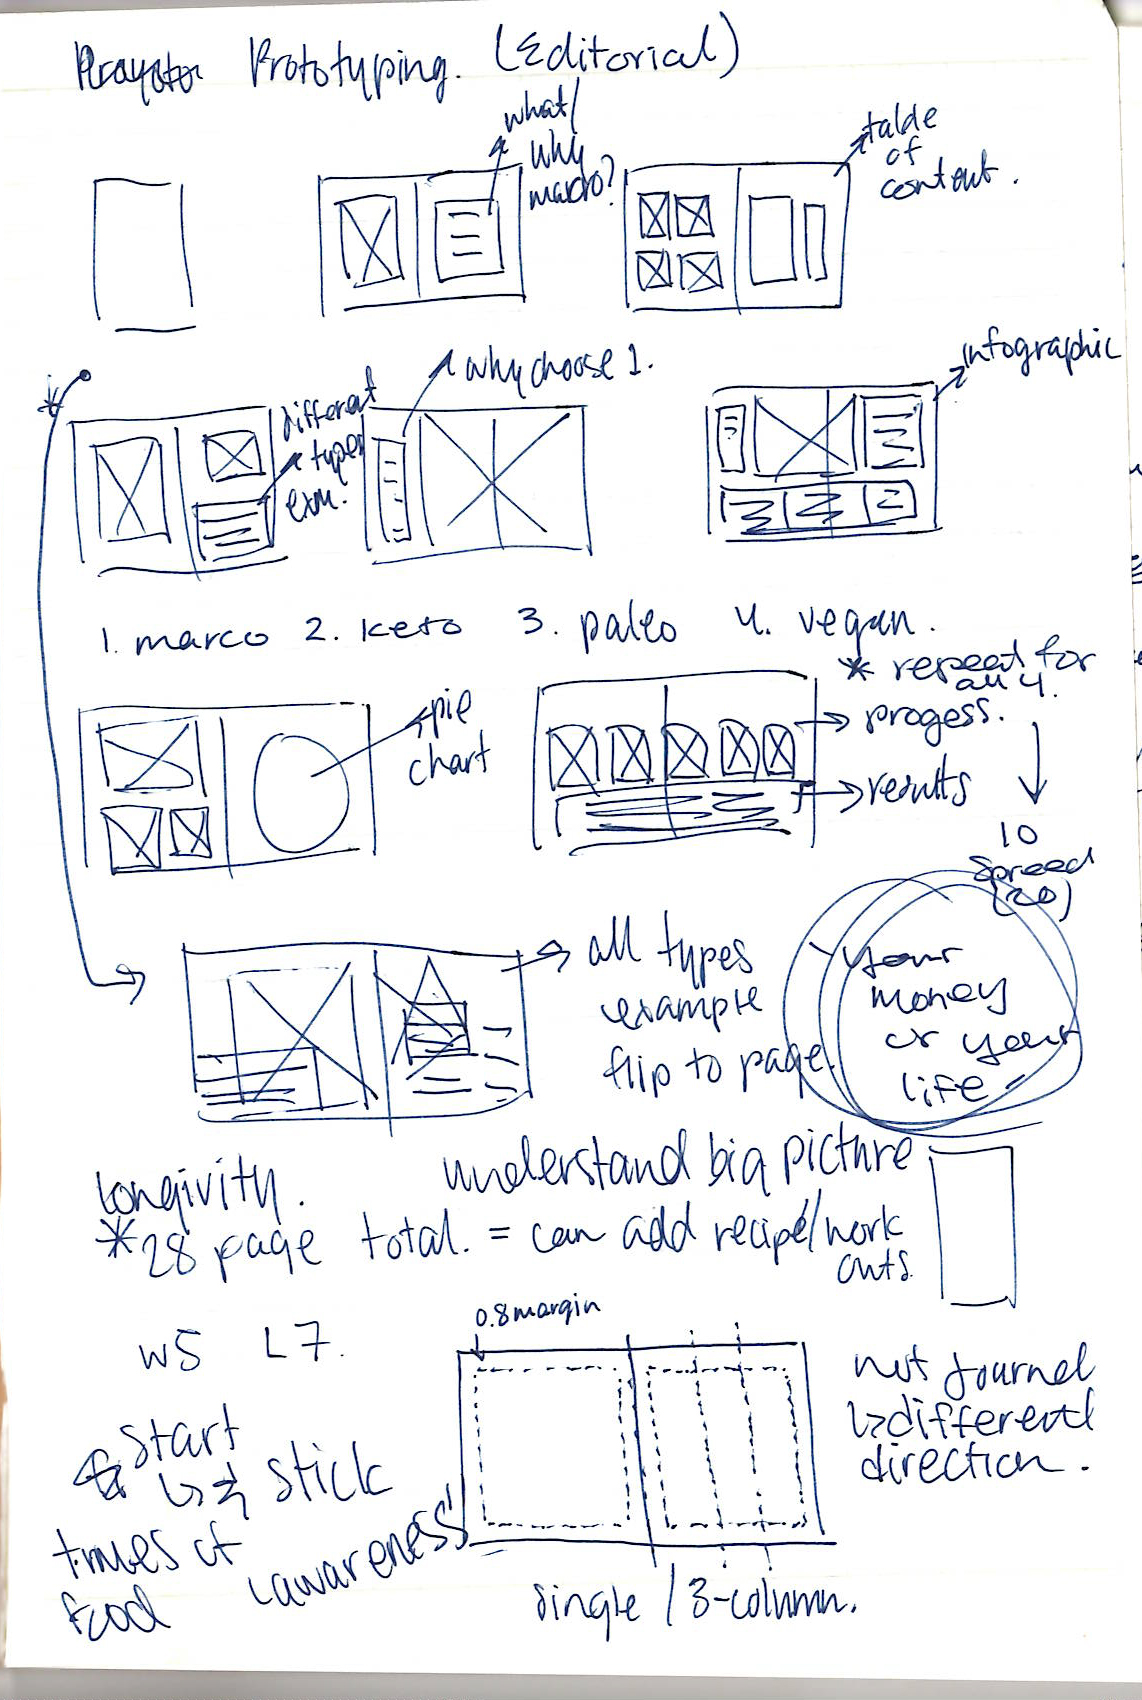 Prototyping. (Editorial)
what/
why
macro?
table
of
content.
why choose 1.
infographic
different
types
exm.
1. marco 2. keto 3. paleo 4. vegan.
* repeat for
all 4.
pie
chart
progess.
results
10
Spread
(20)
all types
example
flip to page.
your
money
or your
life
Longivity.
understand big picture
*28 page total. = can add recipe/work
outs.
0.8 margin
W5 L7.
not journel
↳different
direction.
start
↳ stick
times of
food
awareness
single / 3-column.